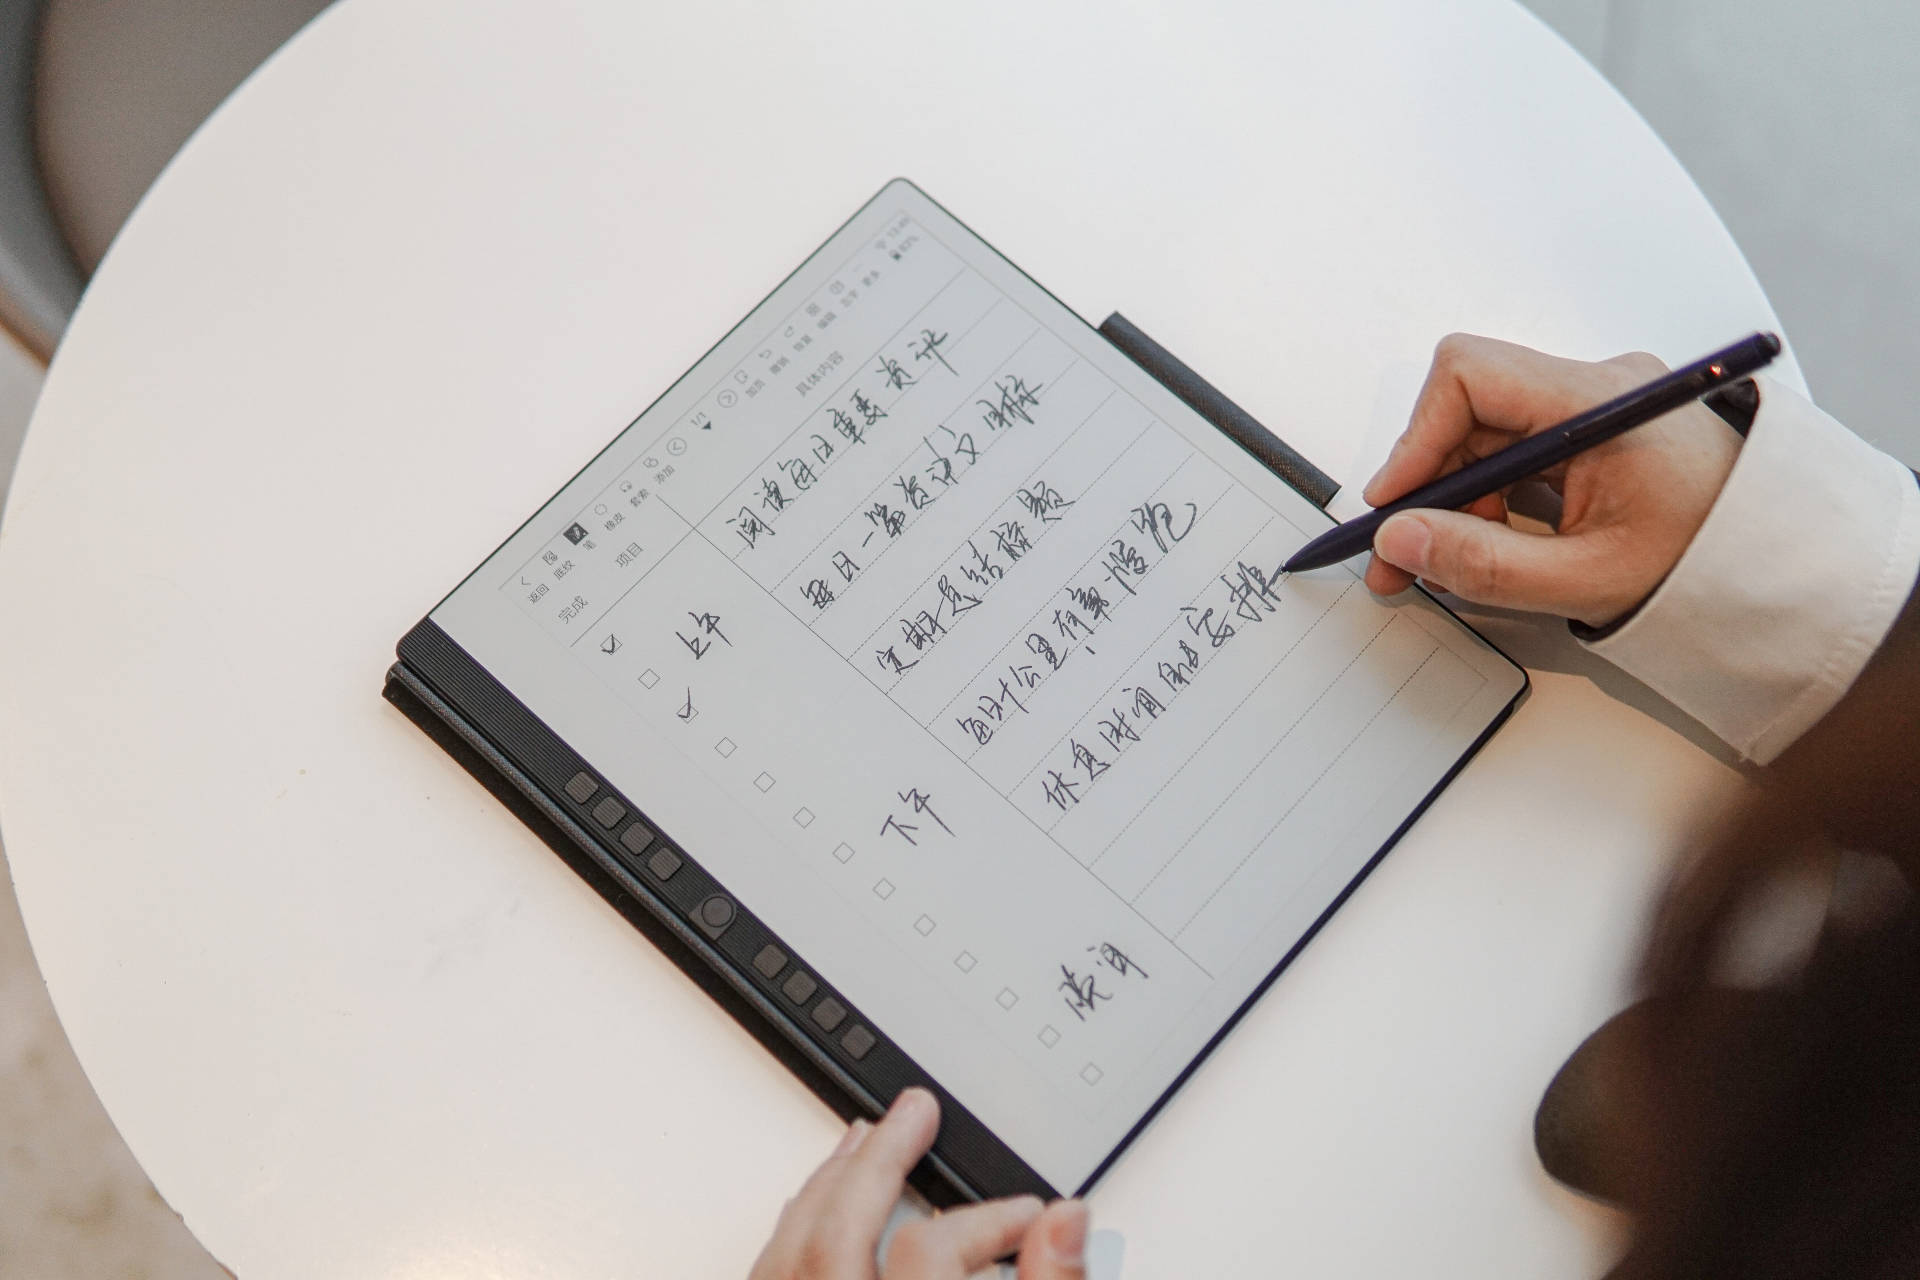 13:46
返回 底纹 笔 橡皮 套索 添加 1/1 加页 撤销 恢复 编辑 五字 更多 82%
完成 项目 具体内容
上午 阅读每日重要资讯
每日一篇资讯文目标
定期总结标题
下午 每日十公里有氧慢跑
休息时间自由安排